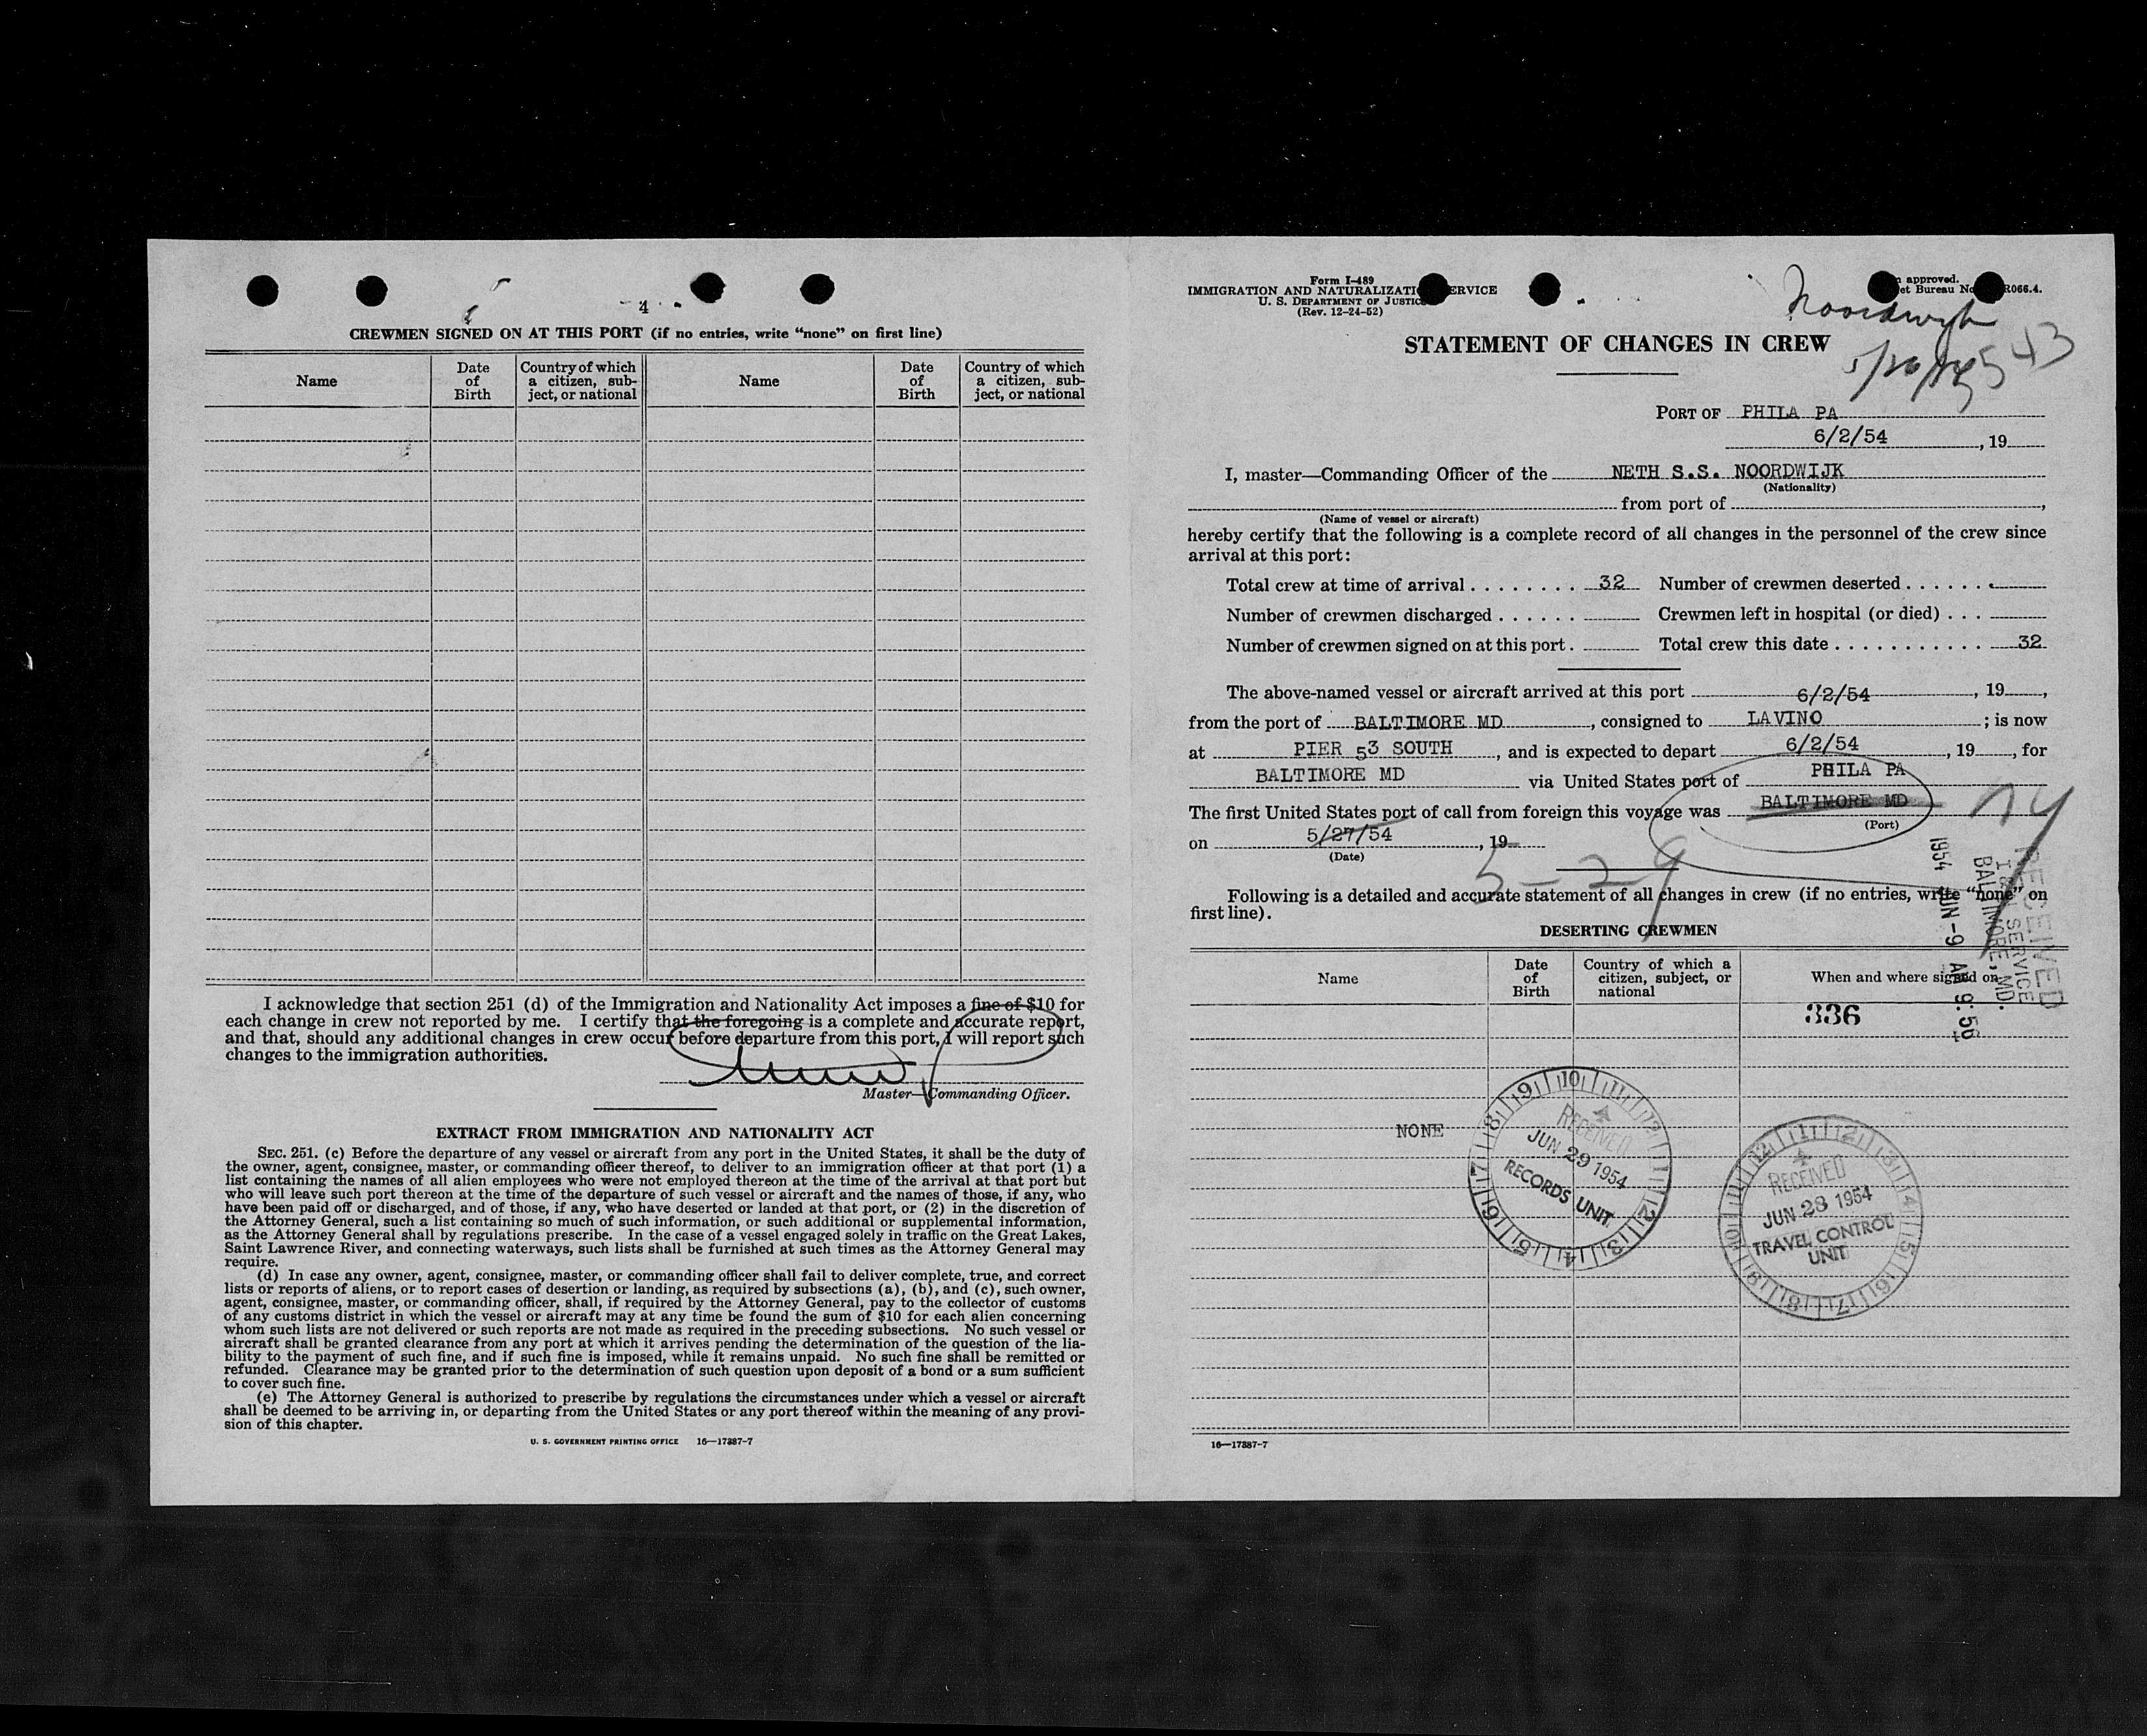 4
CREWMEN SIGNED ON AT THIS PORT (if no entries, write “none” on first line)
Name
Date of Birth
Country of which a citizen, subject, or national
Name
Date of Birth
Country of which a citizen, subject, or national
I acknowledge that section 251 (d) of the Immigration and Nationality Act imposes a fine of $10 for
each change in crew not reported by me. I certify that the foregoing is a complete and accurate report,
and that, should any additional changes in crew occur before departure from this port, I will report such
changes to the immigration authorities.
Master—Commanding Officer.
EXTRACT FROM IMMIGRATION AND NATIONALITY ACT
SEC. 251. (c) Before the departure of any vessel or aircraft from any port in the United States, it shall be the duty of
the owner, agent, consignee, master, or commanding officer thereof, to deliver to an immigration officer at that port (1) a
list containing the names of all alien employees who were not employed thereon at the time of the arrival at that port but
who will leave such port thereon at the time of the departure of such vessel or aircraft and the names of those, if any, who
have been paid off or discharged, and of those, if any, who have deserted or landed at that port, or (2) in the discretion of
the Attorney General, such a list containing so much of such information, or such additional or supplemental information,
as the Attorney General shall by regulations prescribe. In the case of a vessel engaged solely in traffic on the Great Lakes,
Saint Lawrence River, and connecting waterways, such lists shall be furnished at such times as the Attorney General may
require.
(d) In case any owner, agent, consignee, master, or commanding officer shall fail to deliver complete, true, and correct
lists or reports of aliens, or to report cases of desertion or landing, as required by subsections (a), (b), and (c), such owner,
agent, consignee, master, or commanding officer, shall, if required by the Attorney General, pay to the collector of customs
of any customs district in which the vessel or aircraft may at any time be found the sum of $10 for each alien concerning
whom such lists are not delivered or such reports are not made as required in the preceding subsections. No such vessel or
aircraft shall be granted clearance from any port at which it arrives pending the determination of the question of the lia-
bility to the payment of such fine, and if such fine is imposed, while it remains unpaid. No such fine shall be remitted or
refunded. Clearance may be granted prior to the determination of such question upon deposit of a bond or a sum sufficient
to cover such fine.
(e) The Attorney General is authorized to prescribe by regulations the circumstances under which a vessel or aircraft
shall be deemed to be arriving in, or departing from the United States or any port thereof within the meaning of any provi-
sion of this chapter.
U. S. GOVERNMENT PRINTING OFFICE 16—17387-7
Form I-489
IMMIGRATION AND NATURALIZATI ERVICE
U. S. DEPARTMENT OF JUSTIC
(Rev. 12-24-52)
approved.
et Bureau No R066.4.
Noordwijk
543
STATEMENT OF CHANGES IN CREW
PORT OF PHILA PA
6/2/54, 19
I, master—Commanding Officer of the NETH S.S. NOORDWIJK
(Nationality)
from port of ,
(Name of vessel or aircraft)
hereby certify that the following is a complete record of all changes in the personnel of the crew since
arrival at this port:
Total crew at time of arrival 32 Number of crewmen deserted
Number of crewmen discharged Crewmen left in hospital (or died)
Number of crewmen signed on at this port. Total crew this date 32
The above-named vessel or aircraft arrived at this port 6/2/54, 19 ,
from the port of BALTIMORE MD, consigned to LAVINO; is now
at PIER 53 SOUTH, and is expected to depart 6/2/54, 19 , for
BALTIMORE MD via United States port of PHILA PA
The first United States port of call from foreign this voyage was BALTIMORE MD
(Port)
on 5/27/54, 19
(Date)
5-29
NY
Following is a detailed and accurate statement of all changes in crew (if no entries, write “none” on
first line).
RECEIVED
I & N SERVICE
BALTIMORE, MD.
1954 JUN-9 AM 9:56
DESERTING CREWMEN
Name
Date of Birth
Country of which a citizen, subject, or national
When and where signed on
336
NONE
RECEIVED
JUN 29 1954
RECORDS UNIT
RECEIVED
JUN 28 1954
TRAVEL CONTROL
UNIT
16—17387-7